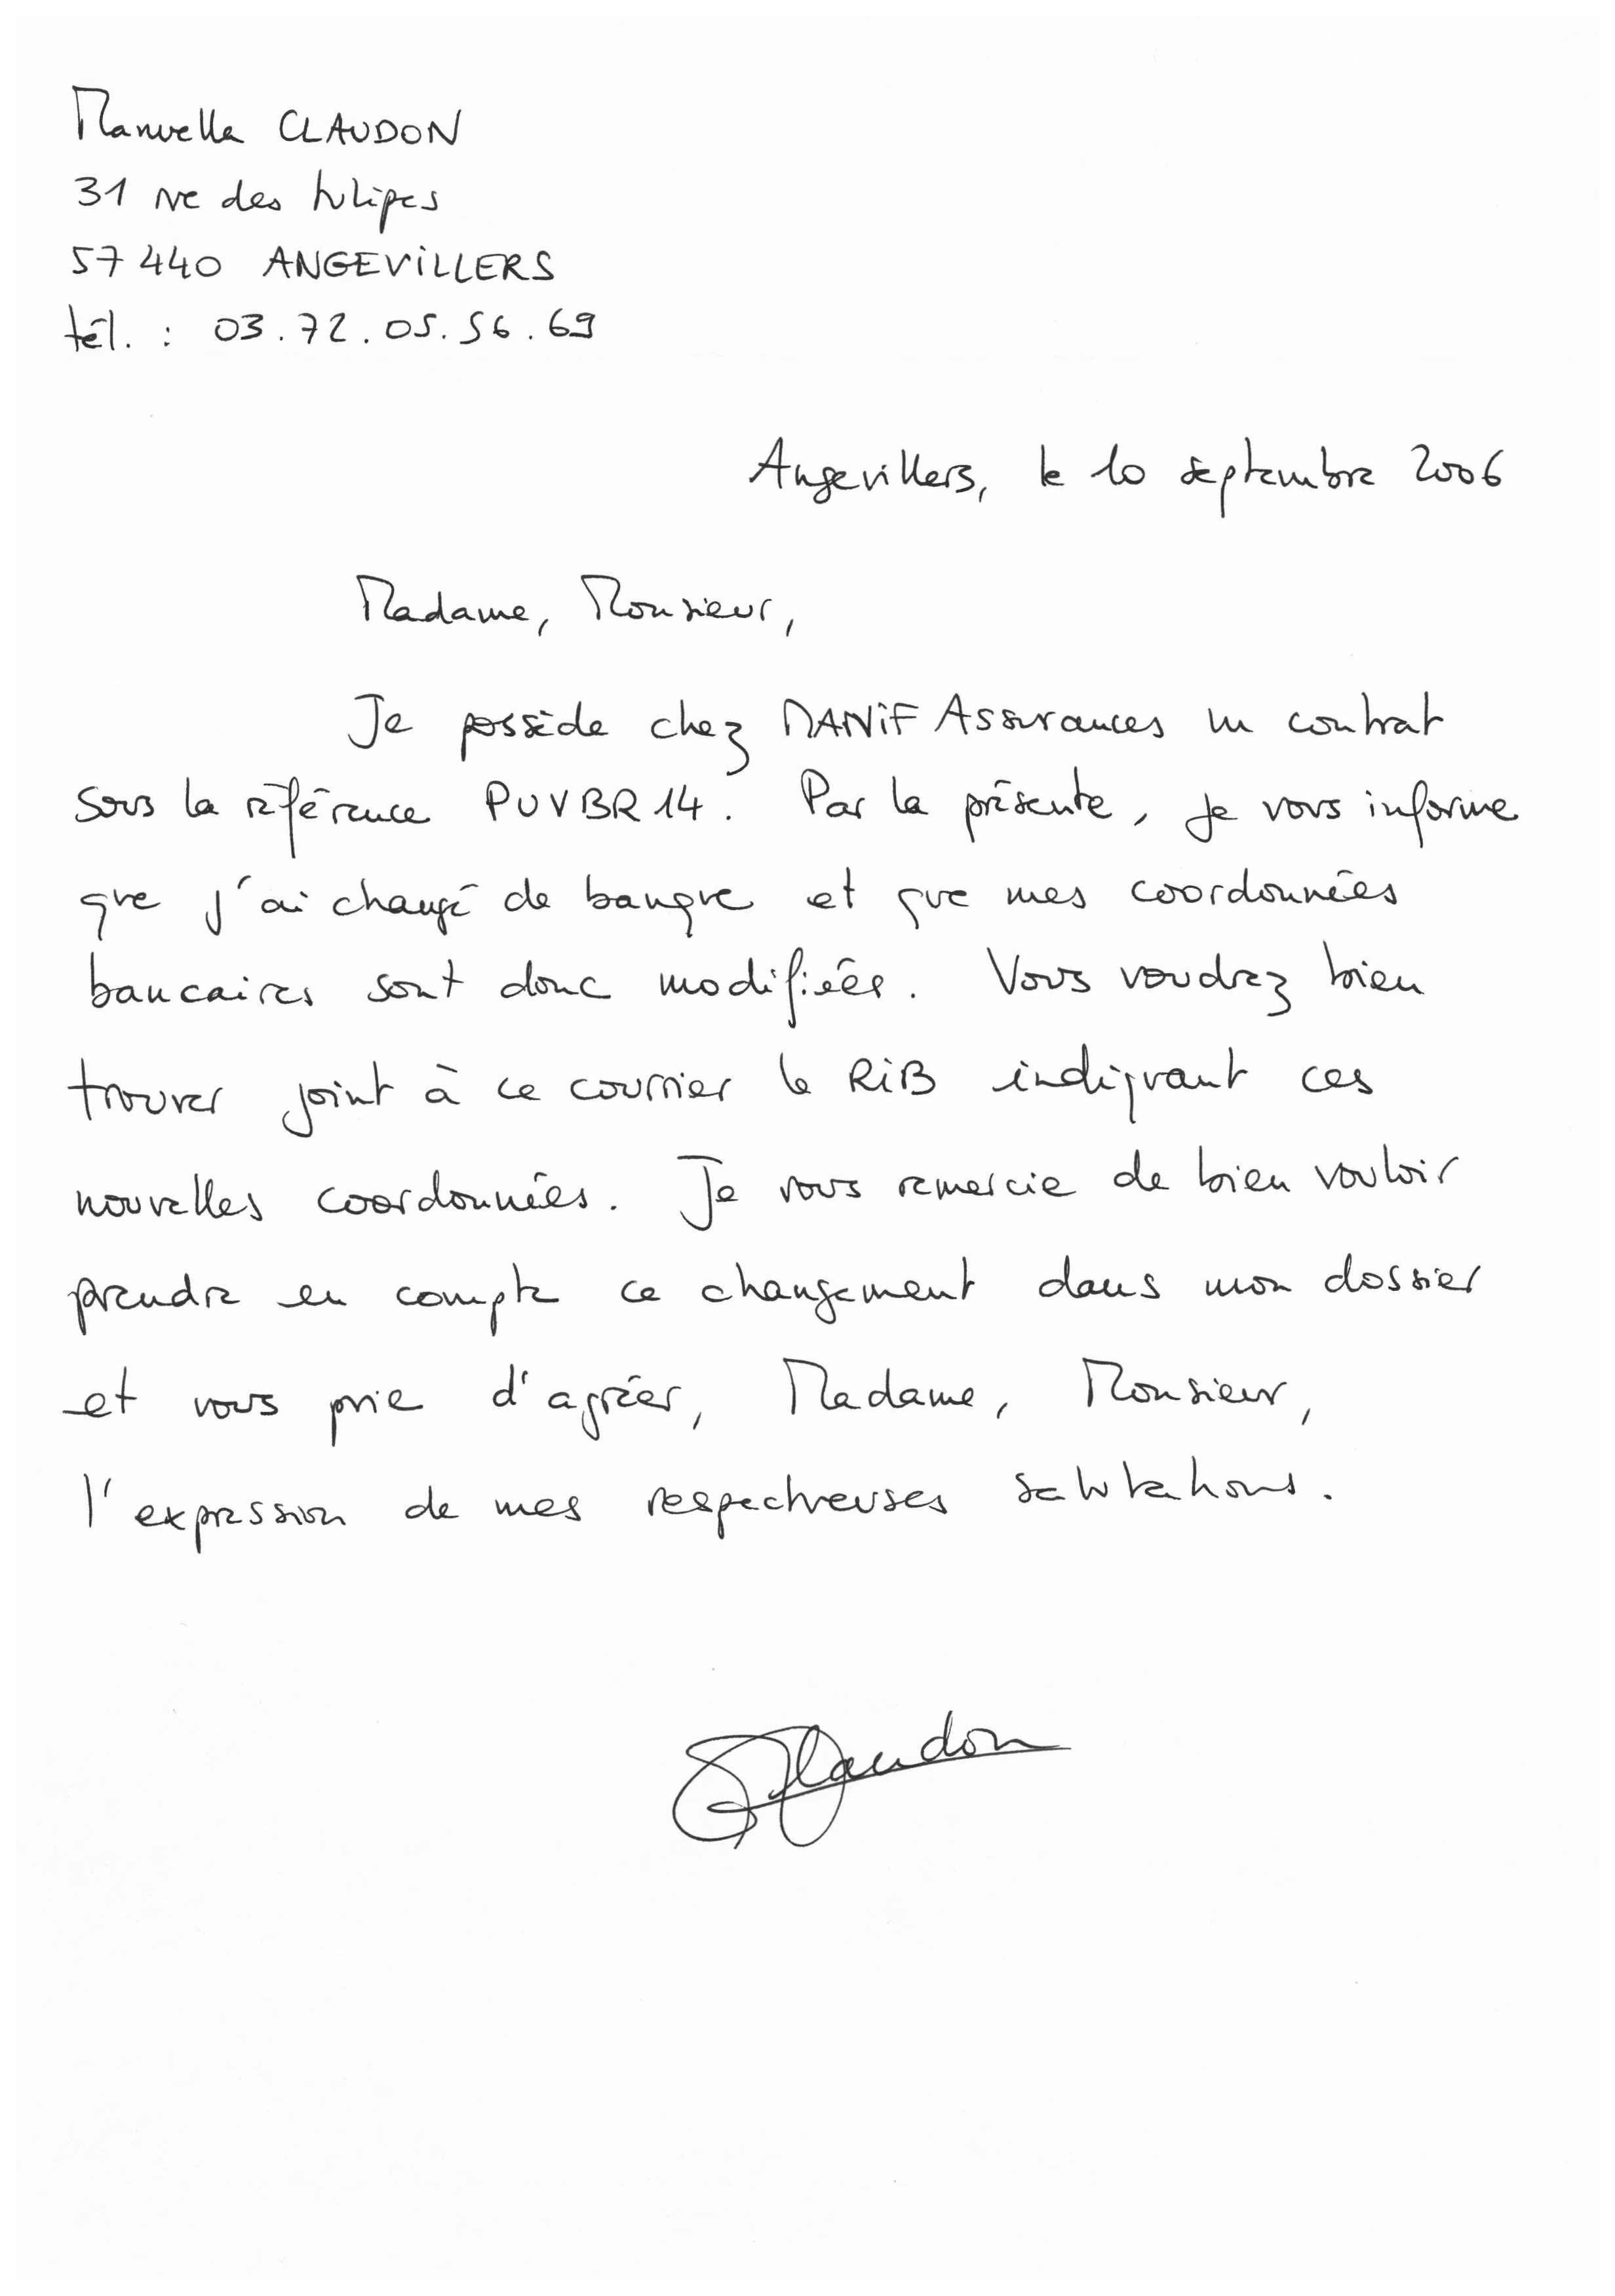 Manuella CLAUDON
31 rue des tulipes
57440 ANGEVILLERS
tél. : 03.72.05.56.69
Angevillers, le 10 septembre 2006
Madame, Monsieur,
Je possède chez MANIF Assurances un contrat
sous la référence PUVBR14. Par la présente, je vous informe
que j'ai changé de banque et que mes coordonnées
bancaires sont donc modifiées. Vous voudrez bien
trouver joint à ce courrier le RIB indiquant ces
nouvelles coordonnées. Je vous remercie de bien vouloir
prendre en compte ce changement dans mon dossier
et vous prie d'agréer, Madame, Monsieur,
l'expression de mes respectueuses salutations.
Claudon